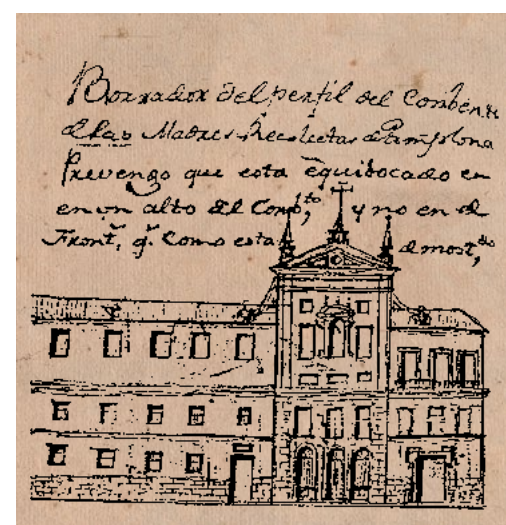 Borrador del perfil del Comben.to
de las Madres Recoletas de Pamplona
Prevengo que esta equibocado en
en un alto del Comb,to y no en el
Front,s q.e Como esta demost,do